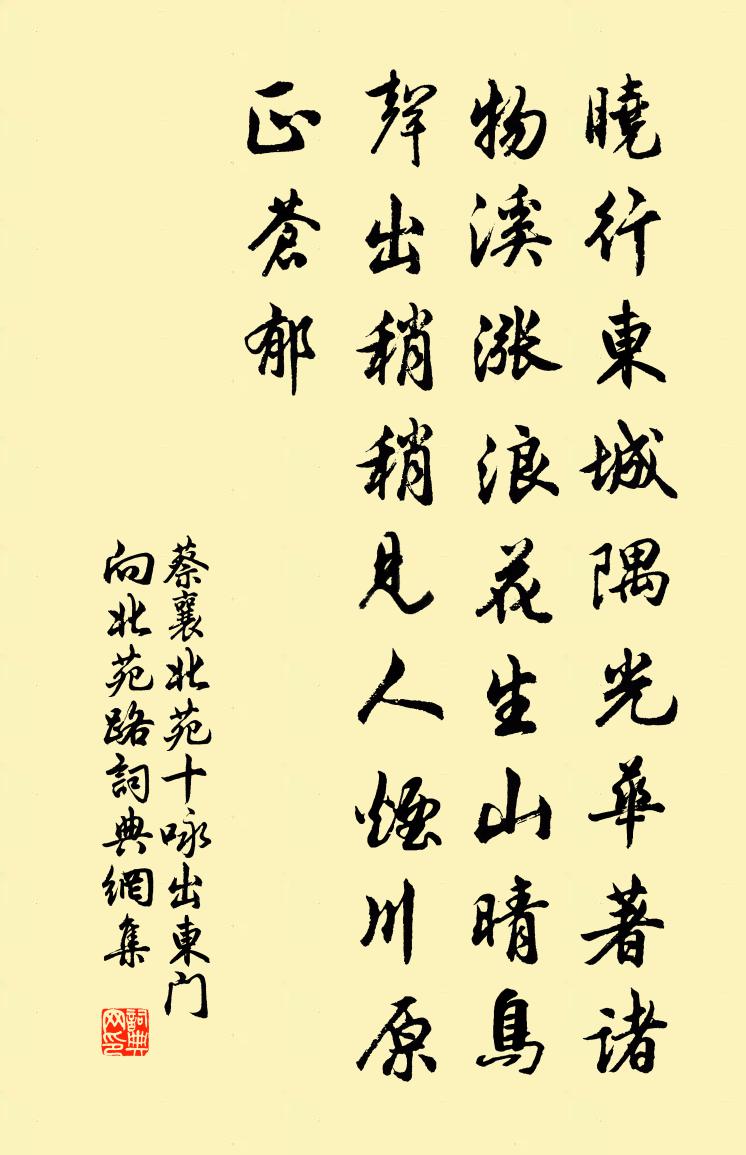 曉行東城隅光華著諸
物溪漲浪花生山晴鳥
聲出稍稍見人煙川原
正蒼郁
蔡襄北苑十咏出東门
向北苑路詞典網集
詞典
网印